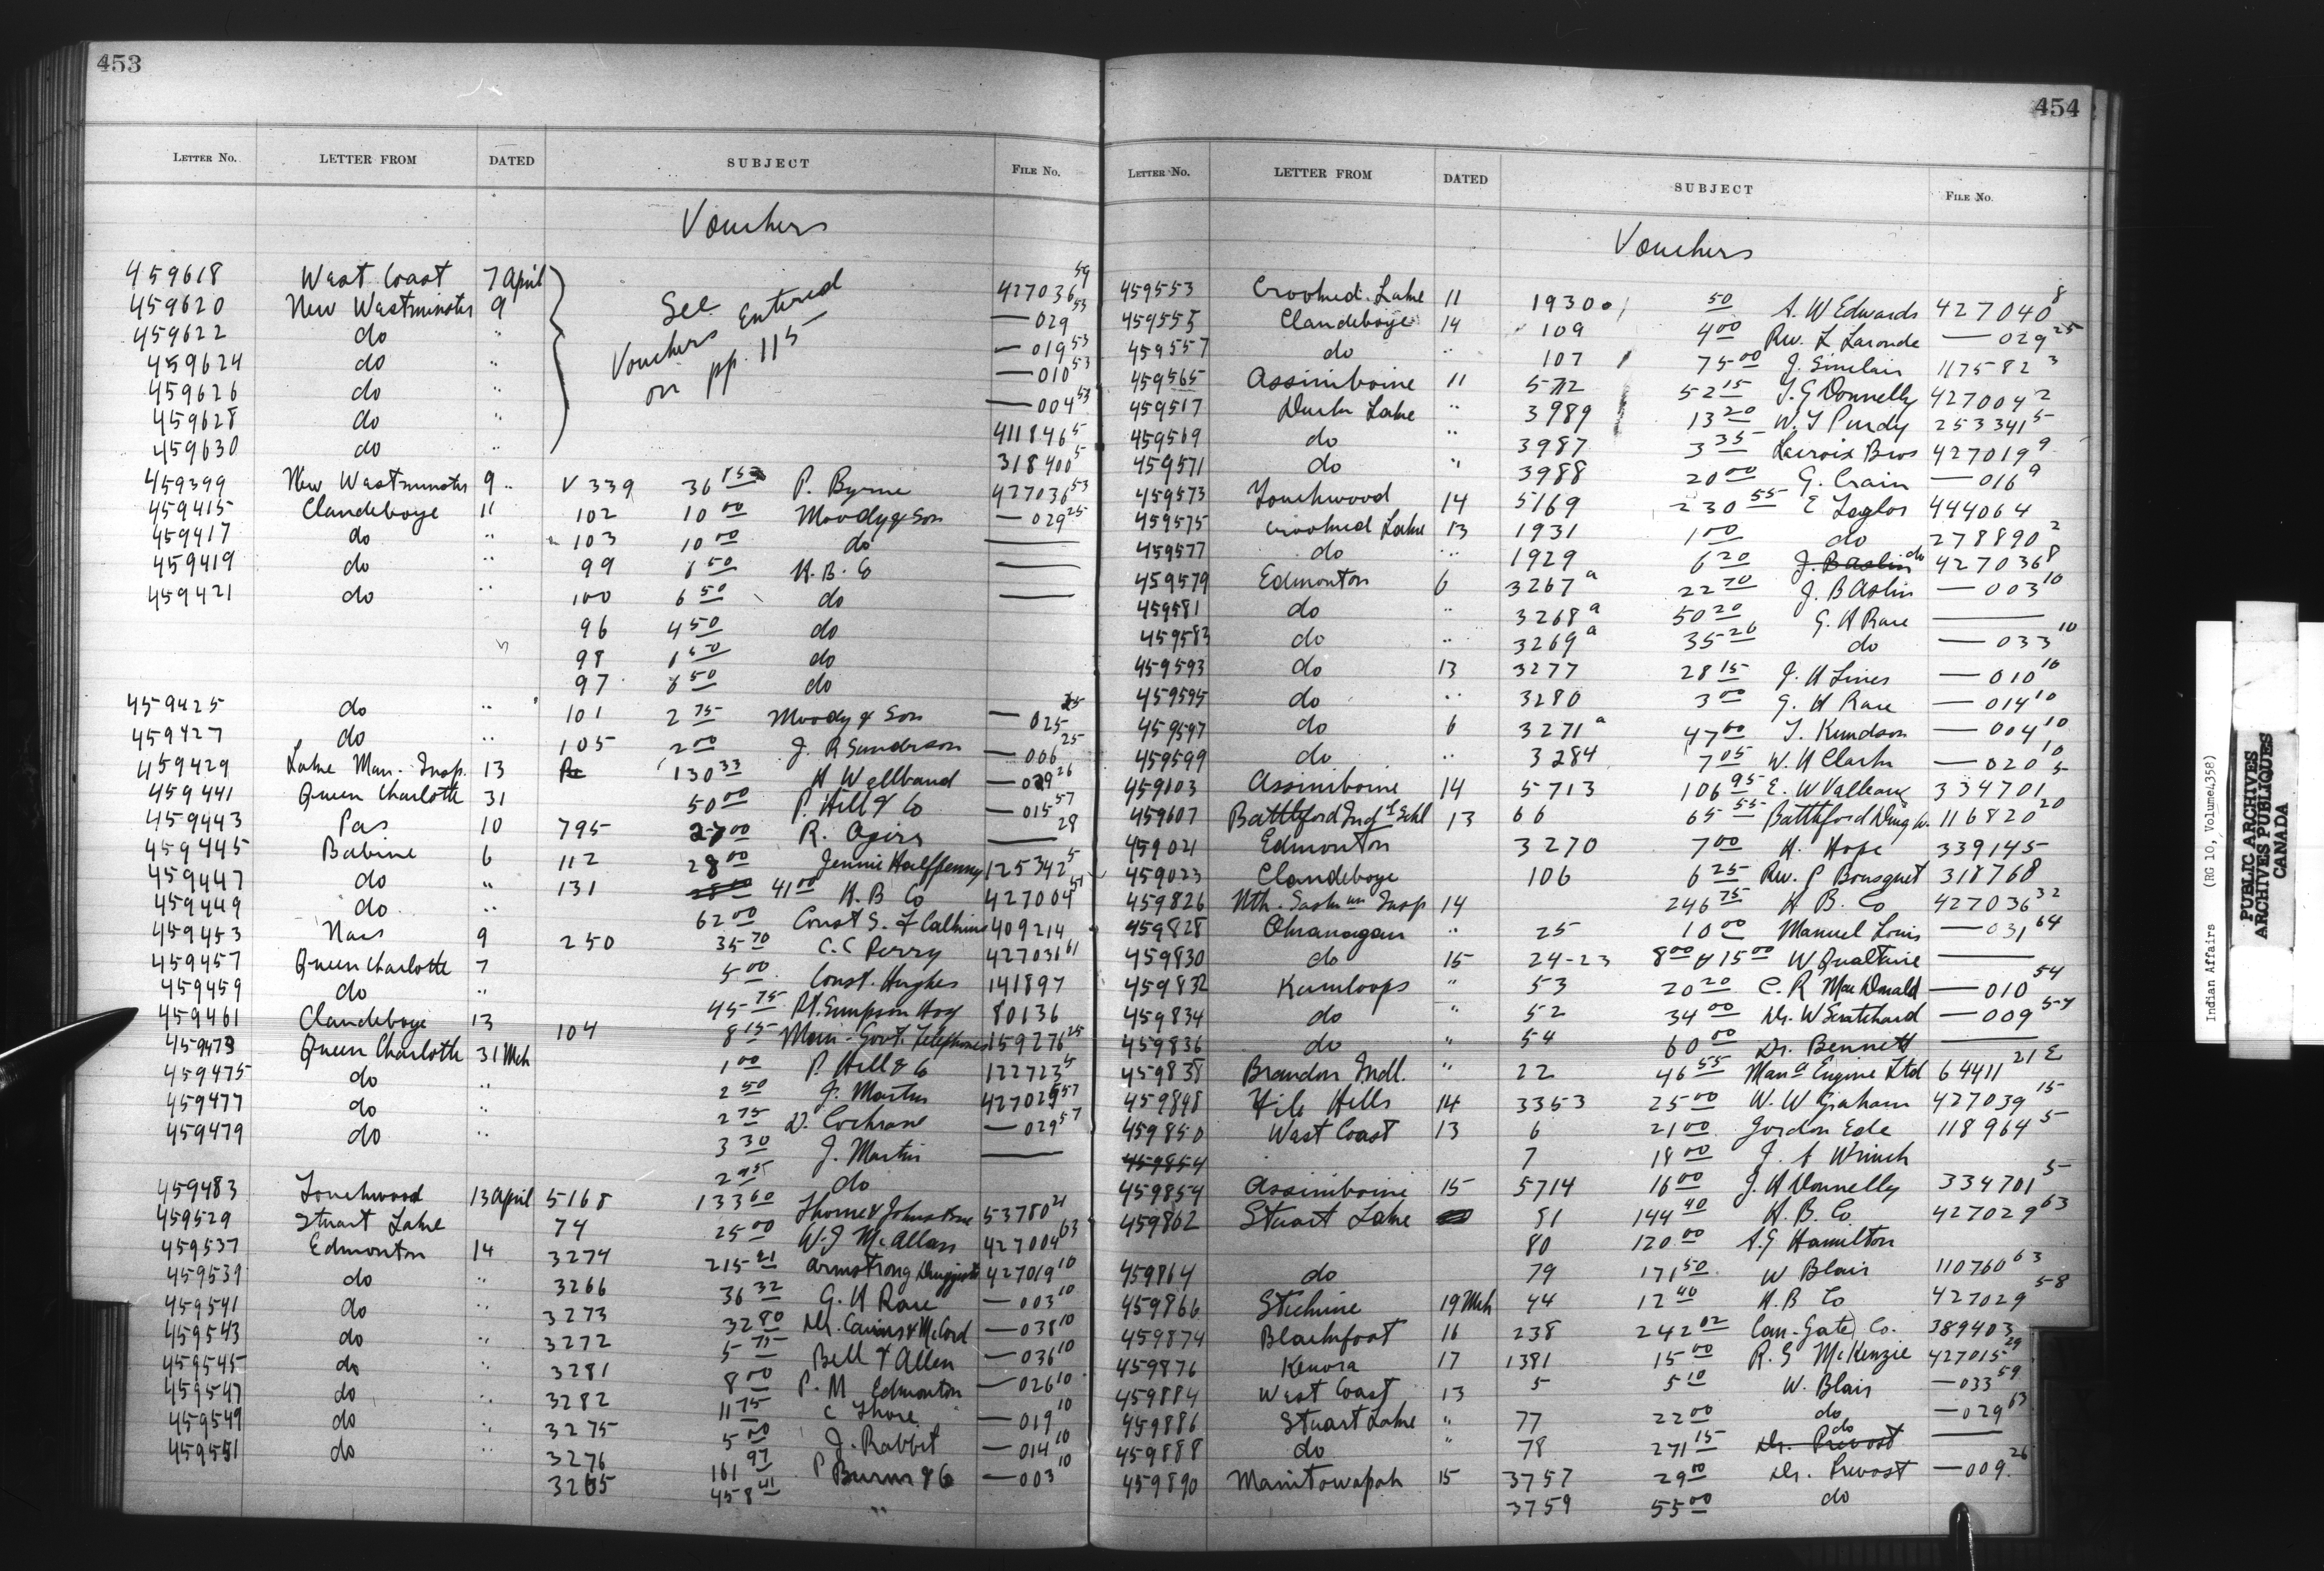 453
LETTER No. LETTER FROM DATED SUBJECT FILE No.
Vouchers
459618 West Coast 7 April 427036 59
459620 New Westminster 9 See Entered — 029 53
459622 do " Vouchers — 019 53
459624 do " on pp. 115 — 010 53
459626 do " — 004 53
459628 do " 411846 5
459630 do " 318400 5
459399 New Westminster 9 " V 339 36 P. Byrne 427036 53
459415 Clandeboye 11 102 10 00 Moody & Son — 029 25
459417 do " 103 10 00 do ——
459419 do " 99 6 50 H. B. Co ——
459421 do " 100 6 50 do ——
96 4 50 do
98 6 50 do
97 6 50 do
459425 do " 101 2 75 Moody & Son — 025 25
459427 do " 105 2 00 J. R Sanderson — 006 25
459429 Lake Man. Insp. 13 130 33 H Wellband — 029 26
459441 Queen Charlotte 31 50 00 P. Hill & Co — 015 57
459443 Pas 10 795 27 00 R. —— 28
459445 Babine 6 112 28 00 Jennie Halfpenny 125342 5
459447 do " 131 41 00 H. B Co 427004 51
459449 do " 62 00 Const S. 409214
459453 Naas 9 250 35 70 C. C Perry 427036 61
459457 Queen Charlotte 7 5 00 Const. Hughes 141897
459459 do " 45 75 Pt. Simpson Hos 80136
459461 Clandeboye 13 104 8 15 Man. Govt. Telephones 159276 25
459473 Queen Charlotte 31 Mch 1 00 P. Hill & Co 122723 5
459475 do " 2 50 J. Martin 427025 57
459477 do " 2 75 D. Cochrane — 029 57
459479 do " 3 30 J. Martin ——
2 95 do
459483 Touchwood 13 April 5168 133 60 53780 21
459529 Stuart Lake 74 25 00 W. J McAllan 427004 63
459537 Edmonton 14 3274 215 21 Armstrong Druggists 427019 10
459539 do " 3266 36 32 G. H Race — 003 10
459541 do " 3273 32 80 Dr. Cairns & McCord — 038 10
459543 do " 3272 5 75 Bell & Allen — 036 10
459545 do " 3281 8 00 P. M Edmonton — 026 10
459547 do " 3282 11 75 C — 019 10
459549 do " 3275 5 00 J. Rabbit — 014 10
459551 do " 3276 161 97 P Burns & Co — 003 10
3265 458 41 "
454
LETTER No. LETTER FROM DATED SUBJECT FILE No.
Vouchers
459553 Crooked Lake 11 1930 50 A. W Edwards 427040 8
459555 Clandeboye 14 109 4 00 Rev. L Laronde — 029 25
459557 do " 107 75 00 J. Sinclair 117582 3
459565 Assiniboine 11 5712 52 15 J. G Donnelly 427004 2
459517 Duck Lake " 3989 13 20 W. J Purdy 253341 5
459569 do " 3987 3 35 Lacroix Bros 427019 9
459571 do " 3988 20 00 G. Crain — 016 9
459573 Touchwood 14 5169 230 55 E 444064
459575 Crooked Lake 13 1931 1 00 do 278890 2
459577 do " 1929 6 20 J. B Aslin do 427036 8
459579 Edmonton 6 3267 a 22 70 J. B Aslin — 003 10
459581 do " 3268 a 50 20 G. H Race ——
459583 do " 3269 a 35 26 do — 033 10
459593 do 13 3277 28 15 J. H Lines — 010 10
459595 do " 3280 3 00 G. H Race — 014 10
459597 do 6 3271 a 47 00 T. Knudson — 004 10
459599 do " 3284 7 05 W. H Clark — 020 10
459603 Assiniboine 14 5713 106 95 E. W 334701 5
459607 Battleford Indl Schl 13 66 65 55 Battleford Drug Co. 116820 20
459021 Edmonton 3270 7 00 H. Hope 339145
459023 Clandeboye 106 6 25 Rev. P Bousquet 318768
459826 Nth. Saskwn Insp 14 246 75 H B. Co 427036 32
459828 Okanagan " 25 10 00 Manuel Louis — 031 64
459830 do 15 24-23 8 00 & 15 00 W ——
459832 Kamloops " 53 20 20 C. R MacDonald — 010 54
459834 do " 52 34 00 Dr. W — 009 54
459836 do " 54 60 00 Dr. Bennett ——
459838 Brandon Indl. " 22 46 55 Mana Engine Ltd 64411 21 E
459848 File Hills 14 3353 25 00 W. W Graham 427039 15
459850 West Coast 13 6 21 00 Gordon Ede 118964 5
459854 7 18 00 J. A Winch
459854 Assiniboine 15 5714 16 00 J. H Donnelly 334701 5
459862 Stuart Lake 81 144 40 H. B. Co 427029 63
80 120 00 A. G Hamilton
459864 do 79 171 50 W Blair 110760 63
459866 Stickine 19 Mch 44 12 40 H. B Co 427029 58
459874 Blackfoot 16 238 242 02 Can. Gate Co. 389403
459876 Kenora 17 1381 15 00 R. S McKenzie 427015 29
459884 West Coast 13 5 5 10 W. Blair — 033 59
459886 Stuart Lake " 77 22 00 do — 029 63
459888 do " 78 271 15 Dr. Prevost do ——
459890 Manitowapah 15 3757 29 00 Dr. Prevost — 009 26
3759 55 00 do
Indian Affairs (RG 10, Volume 4358)
PUBLIC ARCHIVES
ARCHIVES PUBLIQUES
CANADA